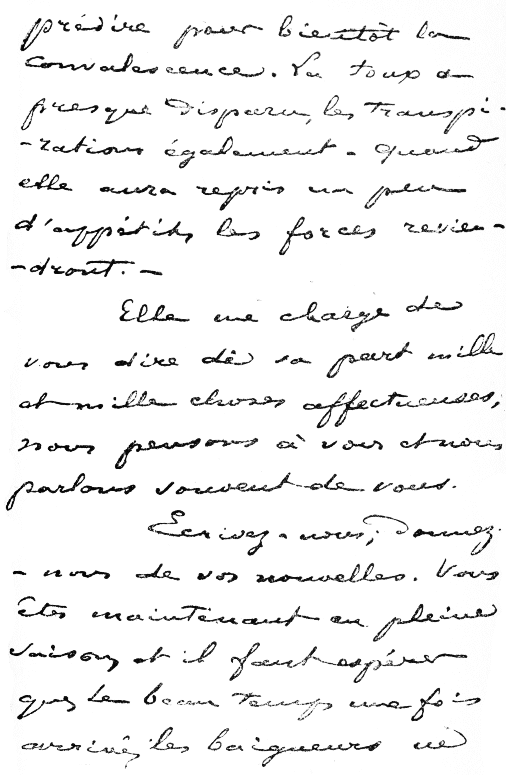 prédire pour bientôt la
convalescence. La toux a
presque disparu, les transpi-
-rations également - quand
elle aura repris un peu
d'appétit, les forces revien-
-dront. -
Elle me charge de
vous dire de sa part mille
et mille choses affectueuses;
nous pensons à vous et nous
parlons souvent de vous.
Ecrivez-nous, donnez-
-nous de vos nouvelles. Vous
êtes maintenant en pleine
saison, et il faut espérer
que, le beau temps une fois
arrivé, les baigneurs ne